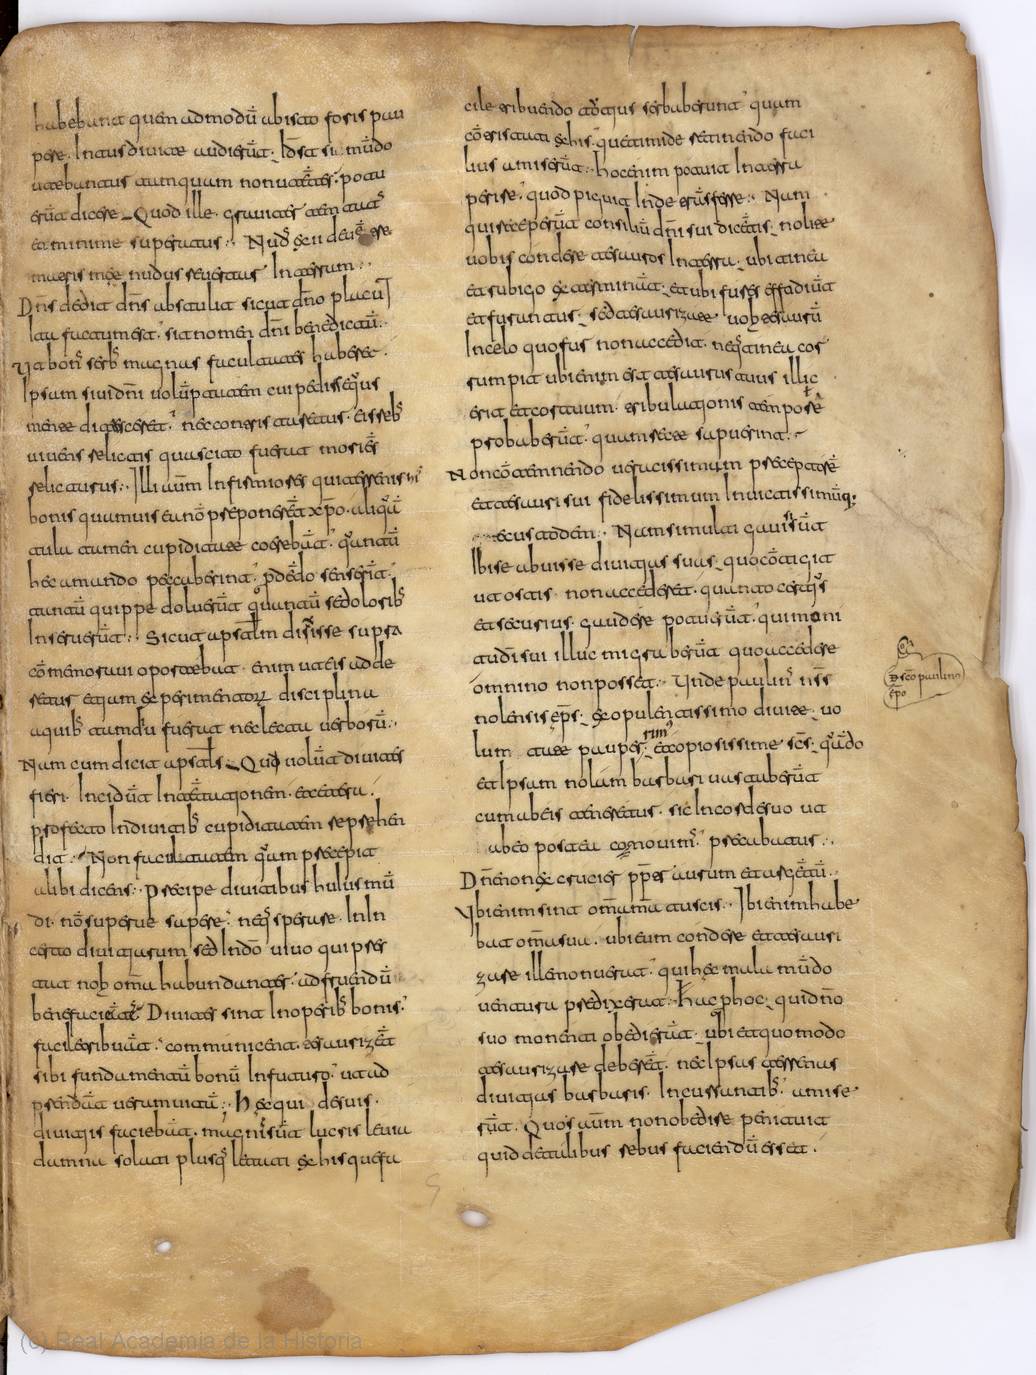 habebant quem admodū abisto foris pau
pere. Intus divite audierūt. Idest si mūdo
utebantur tamquam non utētes. potu
erūt dicere. Quod ille. graviter tentatꝰ
et minime superatus. Nudꝰ exii de utero
matris mee. nudus revertar In terram.
Dn̄s dedit dn̄s abstulit sicut dn̄o placuit
Ita factum est. sit nomen dn̄i benedictū.
Ut bonꝰ serbꝰ magnas facultates haberet.
Ipsam sui dn̄i volūptatem cui pedissequus
mente ditesceret. nec contristaretus. eis rebꝰ
vivens relictis quas cito fuerat moriēs
relicturus. Illi aūm Infirmiores qui terrenis his
bonis quamvis ea nō preponerēt xp̄o. aliquā
tula tamen cupiditate coerebāt. quantū
hec amando peccaberint. pdēdo senserūt.
tantū quippe doluerūt quantū se doloribꝰ
Inseruerūt. Sicut apstlm dixisse supra
cōmemoravi oportebat. enim ut eis adde
retur etjam experimentorum disciplina
a quibꝰ tamdiu fuerat neclecta verborū.
Nam cum dicit apstls. Qui volūt divites
fieri. Incidūt In tētatjonem. et cetera.
profecto In divitiis cupiditatem reprehen
dit. Non facultatem quam precepit
alibi dicens. Precipe divitibus huius mū
di. nō superue sapere. neqꝫ sperare. In In
certo divitjarum sed In dō vivo qui pres
tat nob om̄a habundanter. ad fruendū
benefaciāt. Divites sint In operibꝰ bonis.
facile tribuāt. communicent. tesaurizēt
sibi fundamentū bonū In futuro. ut ad
prendāt veram vitā. Hec qui de suis.
divitjis faciebāt. magnis sūt lucris levia
damna solati plusqꝫ letati ex his que fa
cile tribuendo totjus serbaberunt quam
cōtristati ex his. que timide retinendo faci
lius amiserūt. hoc enim potuit In terra
perire. quod piguit Inde trāsferre. Nam
qui receperūt consiliū dn̄i sui dicētis. nolite
vobis condere tesauros In terra. ubi tinea
et rubigo exterminat. et ubi fures effodiūt
et furantur. sed tesaurizate vob tesaurū
In celo quo fur non accedit. neqꝫ tinea cor
rumpit ubi enim est tesaurus tuus illic
erit et cor tuum. tribulatjonis tempore
probaberūt. quam recte sapuerint.
Non cōtemnendo veracissimum preceptorē
et tesauri sui fidelissimum Invictissimūqꝫ
custodem. Nam si multi gavisi sūt
Ibi se abuisse divitjas suas. quo cōtigit
ut ostis non accederet. quanto certjꝰs
et securius. gaudere potuerūt. qui moni
tu dī sui illuc migraberūt quo accedere
omnino non posset. Unde paulinꝰ nr̄s
nolensis ep̄s. ex opulentissimo divite. vo
luntate pauperrimꝰ et copiosissime scs̄. quādo
et Ipsam nolam barbari vastaberūt
cum ab eis teneretur. sic In corde suo ut
ab eo postea cognovimꝰ precabatur.
Dn̄e non excrucier pp̄ter aurum et argētū.
Ubi enim sint om̄a mea tu scis. Ibi enim habe
bat om̄a sua. ubi eum condere et tesauri
zare ille monuerat. qui hec mala mūdo
ventura predixerat. Hac p hoc. qui dn̄o
suo monenti obedierūt. ubi et quomodo
tesaurizare deberēt. nec Ipsas terrenas
divitjas barbaris. Incursantibꝰ. amise
rūt. Quos aūm non obedisse penituit
quid de talibus rebus faciendū esset.
D sc̄o paulino
ep̄o